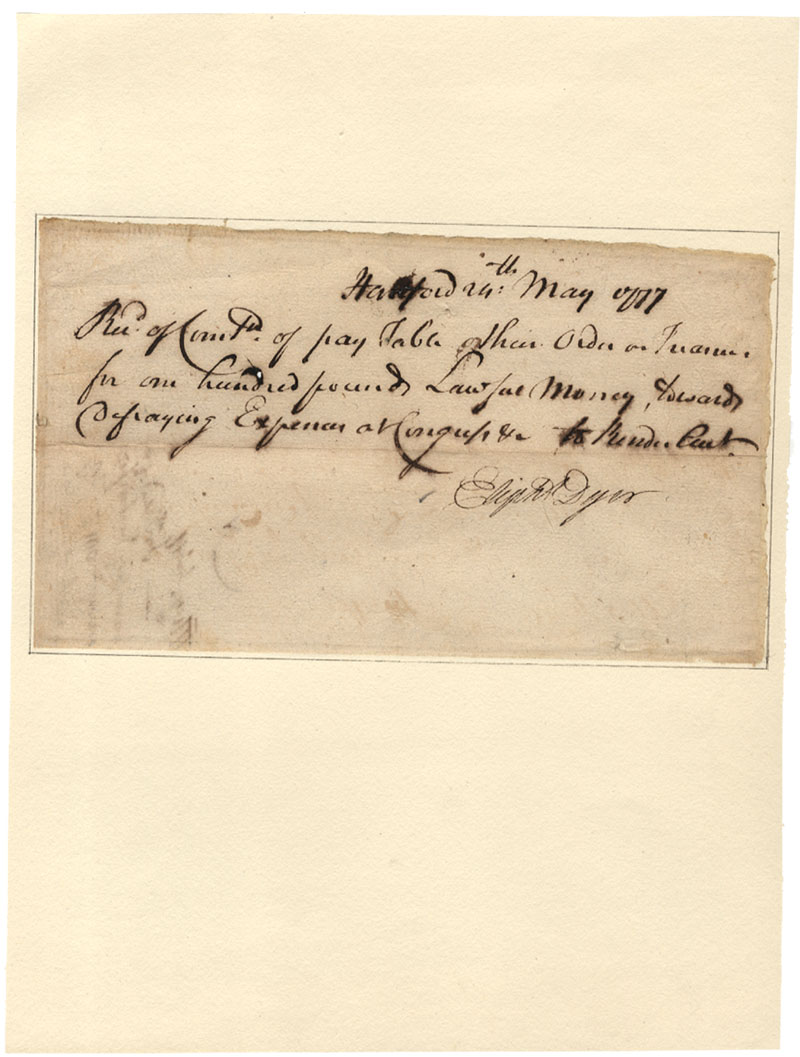 Hartford 24th May 1777
Recd. of Comttee. of pay Table their Order on Treasurer
for one hundred pounds Lawful Money, towards
Defraying Expences at Congress &c to Render Acct.
Eliphlt Dyer